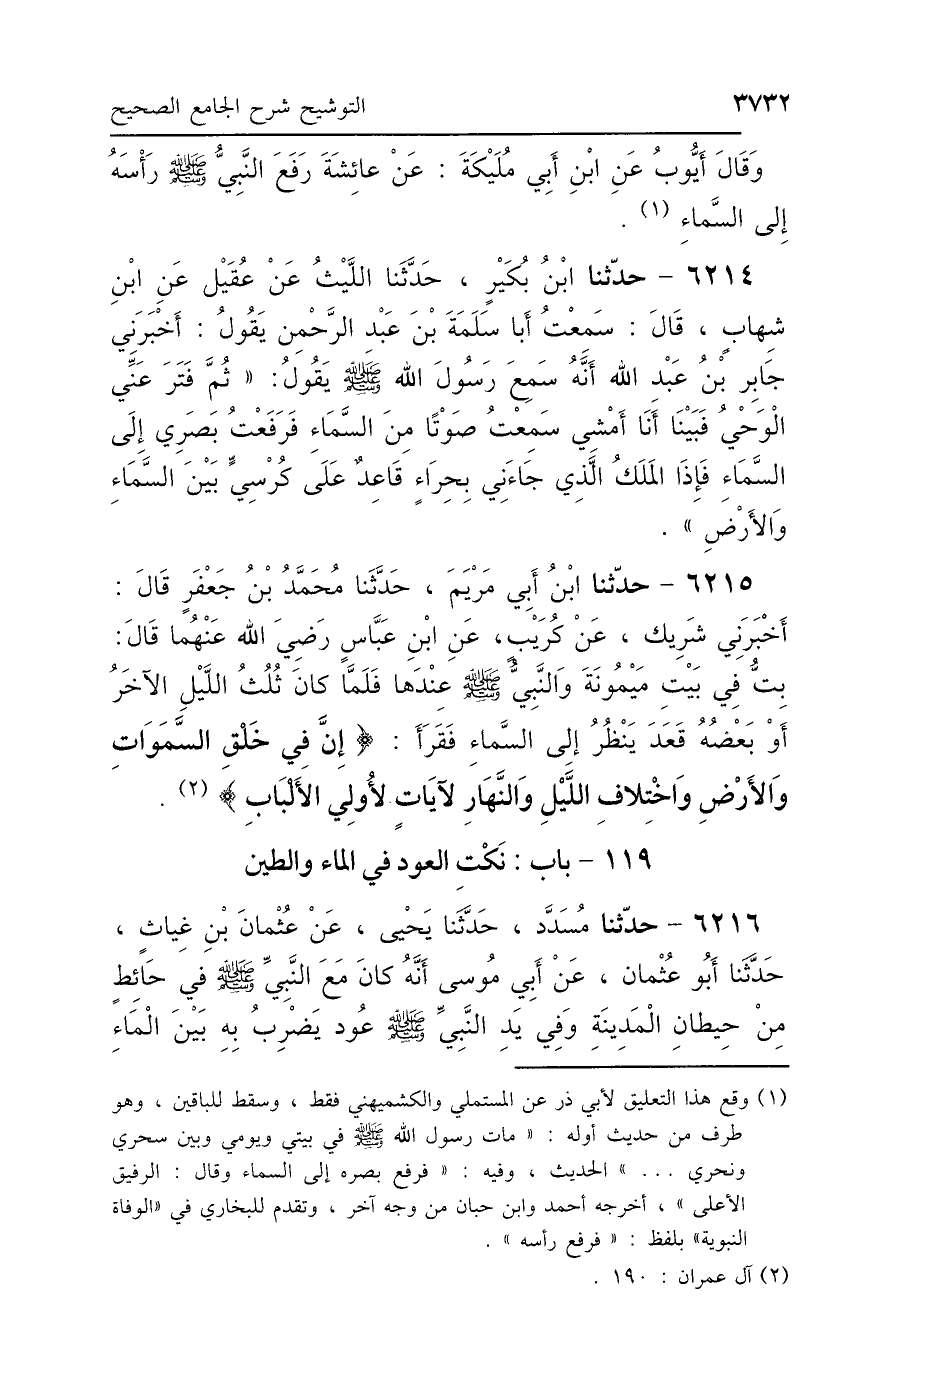 ٣٧٣٢ التوشيح شرح الجامع الصحيح
وَقَالَ أَيُّوبُ عَنِ ابْنِ أَبِي مُلَيْكَةَ : عَنْ عائِشَةَ رَفَعَ النَّبِيُّ ﷺ رَأْسَهُ
إِلى السَّماءِ (١) .
٦٢١٤ - حدّثنا ابْنُ بُكَيْرٍ ، حَدَّثَنا اللَّيْثُ عَنْ عُقَيْل عَنِ ابْنِ
شهابٍ ، قَالَ : سَمعْتُ أَبا سَلَمَةَ بْنَ عَبْدِ الرَّحْمنِ يَقُولُ : أَخْبَرَنِي
جَابِر بْنُ عَبْدِ الله أَنَّهُ سَمِعَ رَسُولَ الله ﷺ يَقُولُ: « ثُمَّ فَتَرَ عَنِّي
الْوَحْيُ فَبَيْنَا أَنَا أَمْشي سَمعْتُ صَوْتًا مِنَ السَّمَاءِ فَرَفَعْتُ بَصَرِي إِلَى
السَّمَاءِ فَإِذَا المَلَكُ الَّذِي جَاءَنِي بِحِرَاءٍ قَاعِدٌ عَلَى كُرْسِيٍّ بَيْنَ السَّمَاءِ
وَالأَرْضِ » .
٦٢١٥ - حدّثنا ابْنُ أَبِي مَرْيَمَ ، حَدَّثَنا مُحَمَّدُ بْنُ جَعْفَرٍ قَالَ :
أَخْبَرَنِي شَرِيك ، عَنْ كُرَيْبٍ، عَنِ ابْنِ عَبَّاسٍ رَضِيَ الله عَنْهُما قَالَ:
بِتُّ فِي بَيْتِ مَيْمُونَةَ وَالنَّبِيُّ ﷺ عِنْدَها فَلَمَّا كانَ ثُلُثُ اللَّيْلِ الآخَرُ
أَوْ بَعْضُهُ قَعَدَ يَنْظُرُ إِلى السَّماءِ فَقَرَأَ : ﴿ إِنَّ فِي خَلْقِ السَّمَوَاتِ
وَالأَرْضِ وَاخْتِلافِ اللَّيْلِ وَالنَّهَارِ لآيَاتٍ لأُولِي الأَلْبَابِ ﴾ (٢) .
١١٩ - باب : نَكْتِ العود في الماء والطين
٦٢١٦ - حدّثنا مُسَدَّد ، حَدَّثَنا يَحْيى ، عَنْ عُثْمانَ بْنِ غياثٍ ،
حَدَّثَنا أَبُو عُثْمان ، عَنْ أَبِي مُوسى أَنَّهُ كانَ مَعَ النَّبِيِّ ﷺ فِي حَائِطٍ
مِنْ حِيطانِ الْمَدِينَةِ وَفِي يَدِ النَّبِيِّ ﷺ عُود يَضْرِبُ بِهِ بَيْنَ الْمَاءِ
(١) وقع هذا التعليق لأبي ذر عن المستملي والكشميهني فقط ، وسقط للباقين ، وهو
طرف من حديث أوله : « مات رسول الله ﷺ في بيتي ويومي وبين سحري
ونحري ... » الحديث ، وفيه : « فرفع بصره إلى السماء وقال : الرفيق
الأعلى » ، أخرجه أحمد وابن حبان من وجه آخر ، وتقدم للبخاري في «الوفاة
النبوية» بلفظ : « فرفع رأسه » .
(٢) آل عمران : ١٩٠ .